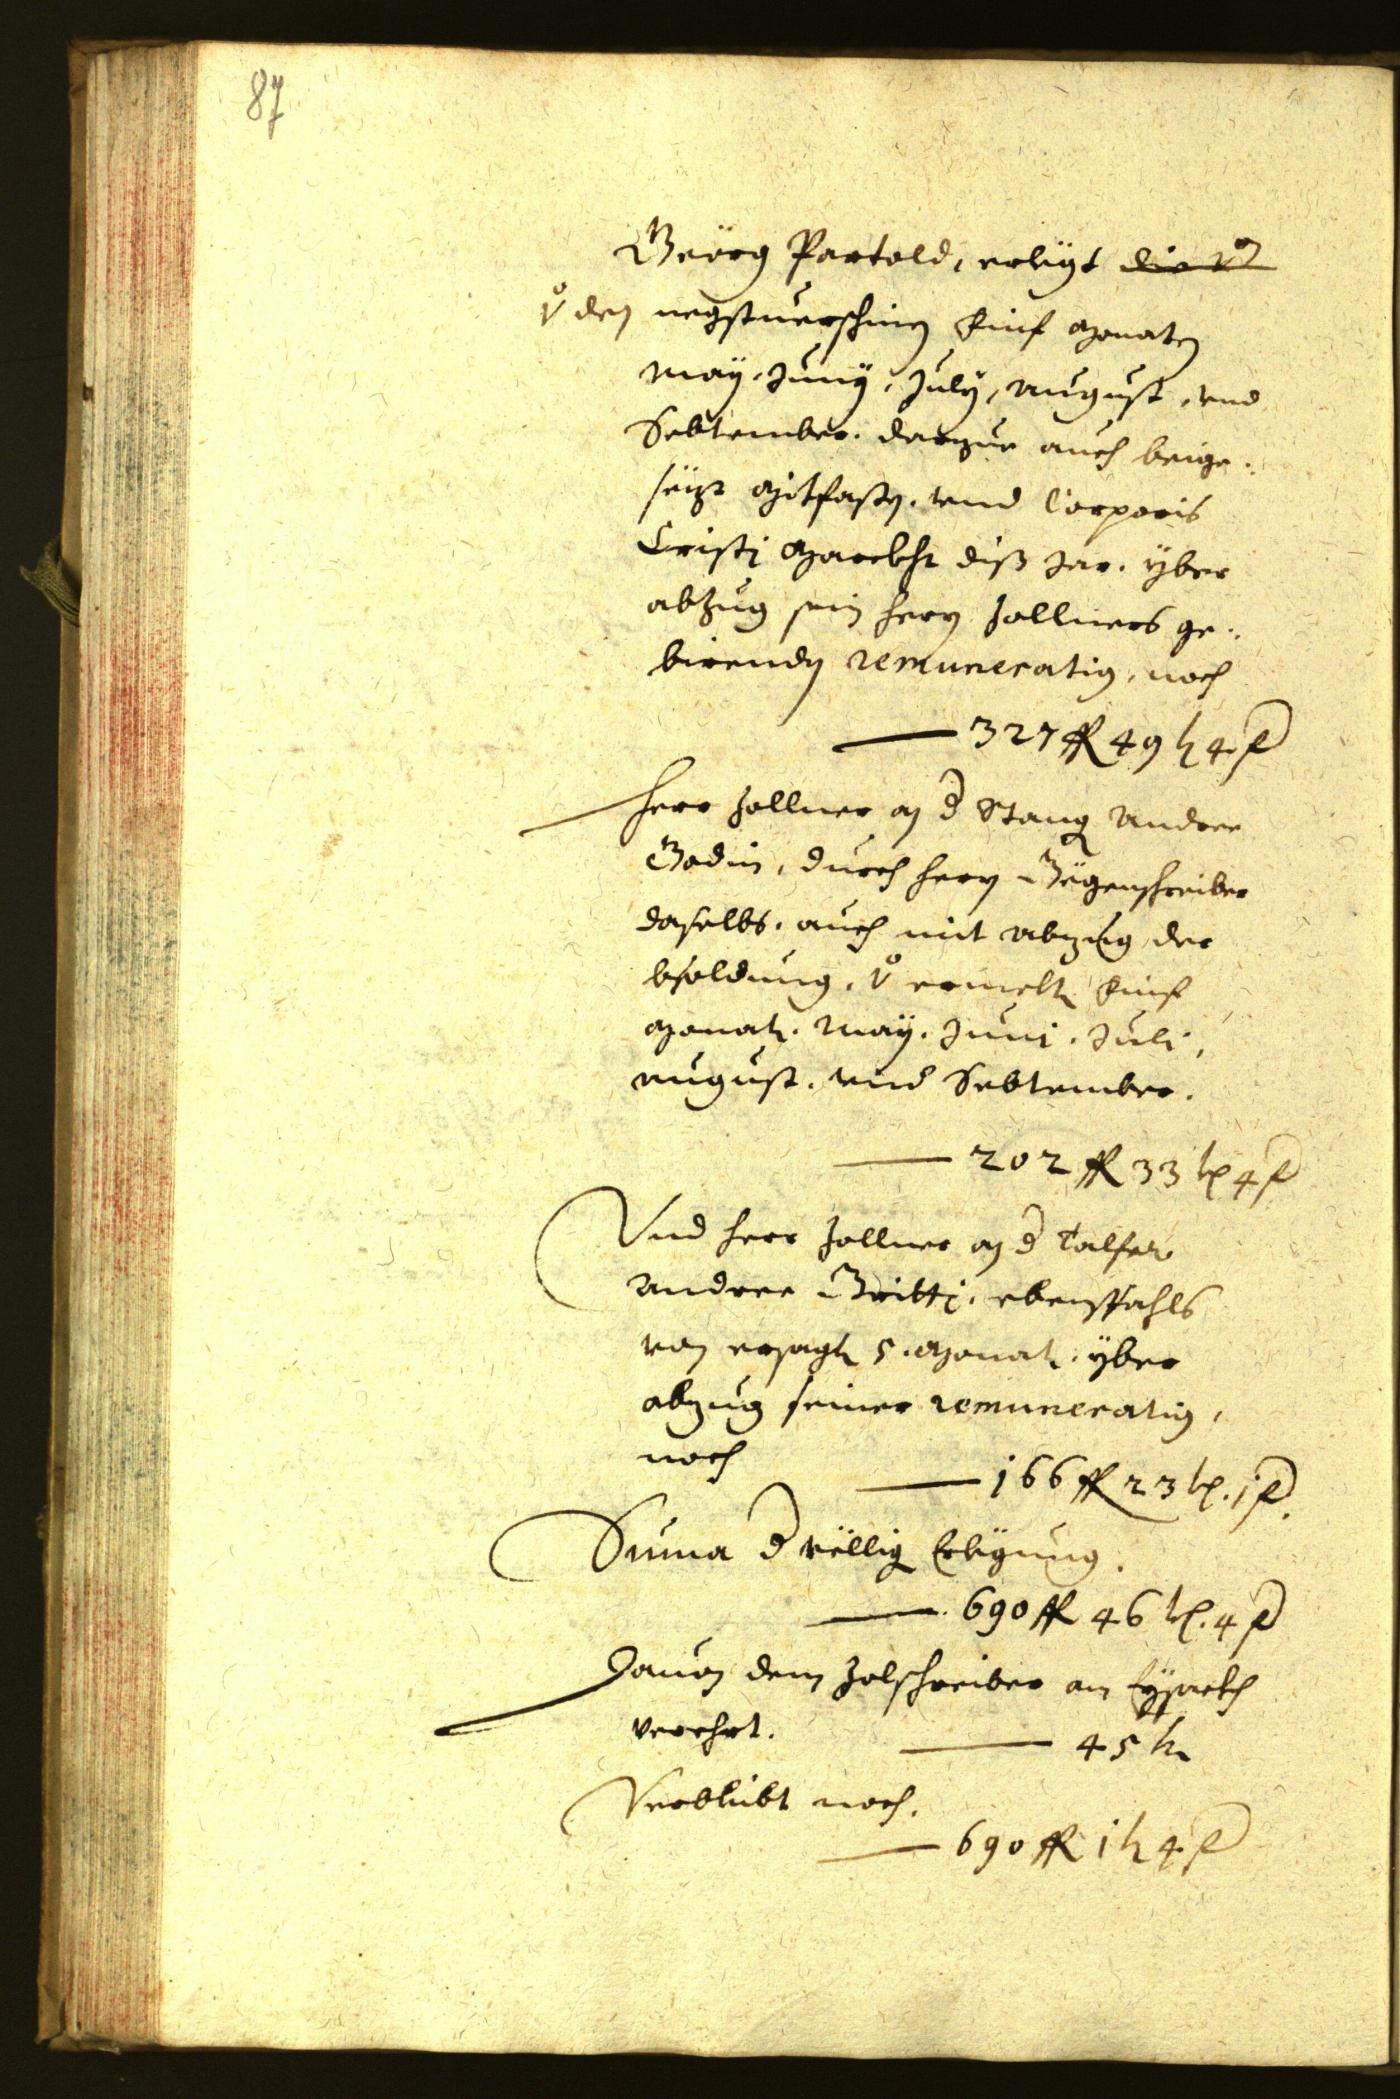 87
Geörg Partold, erligt die v̊
v̊ den negstuerschinen finf Monaten
May. Juny, July, August, vnd
Sebtember. darzue auch beige-
sezt Mitfasten. vnd Corporis
Cristj Marckht diß Jar. yber
abzug sein herrn Zollners ge-
birenden remuneration, noch
— 327 fl 49 k 4 f
Herr Zollner an d Stang Andree
Godin, durch herrn Gegenschreiber
daselbs. auch mit abzug der
bsoldung. v̊ ermelte finf
Monat. May. Juni. Juli,
August. vnd Sebtember.
— 202 fl 33 k 4 f
Vnd herr Zollner an d Talfer
Andree ebensfahls
von ersagte 5. Monat. yber
abzug seiner remuneration,
noch
— 166 fl 23 k. 1 f.
Suma d völlig Erligung.
— 690 fl 46 k. 4 f
Dauon dem Zolschreiber am Eysackh
verehrt.
— 45 k
Verblibt noch.
— 690 fl 1 k 4 f